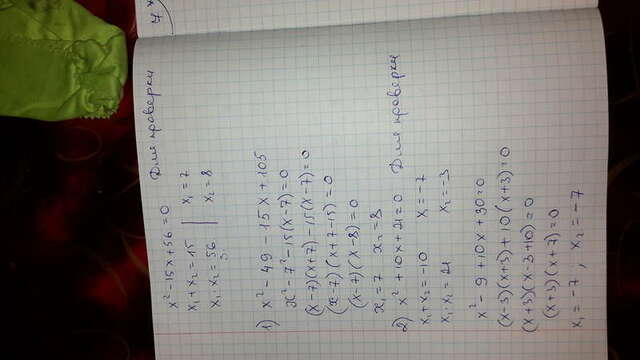 x² - 15x + 56 = 0 Для проверки
x₁ + x₂ = 15 | x₁ = 7
x₁ · x₂ = 56 | x₂ = 8
1) x² - 49 - 15x + 105
x² - 7² - 15(x - 7) = 0
(x - 7)(x + 7) - 15(x - 7) = 0
(x - 7)(x + 7 - 15) = 0
(x - 7)(x - 8) = 0
x₁ = 7 x₂ = 8
2) x² + 10x + 21 = 0 Для проверки
x₁ + x₂ = -10 x₁ = -7
x₁ · x₂ = 21 x₂ = -3
x² - 9 + 10x + 30 = 0
(x - 3)(x + 3) + 10(x + 3) = 0
(x + 3)(x - 3 + 10) = 0
(x + 3)(x + 7) = 0
x₁ = -7, x₂ = -7